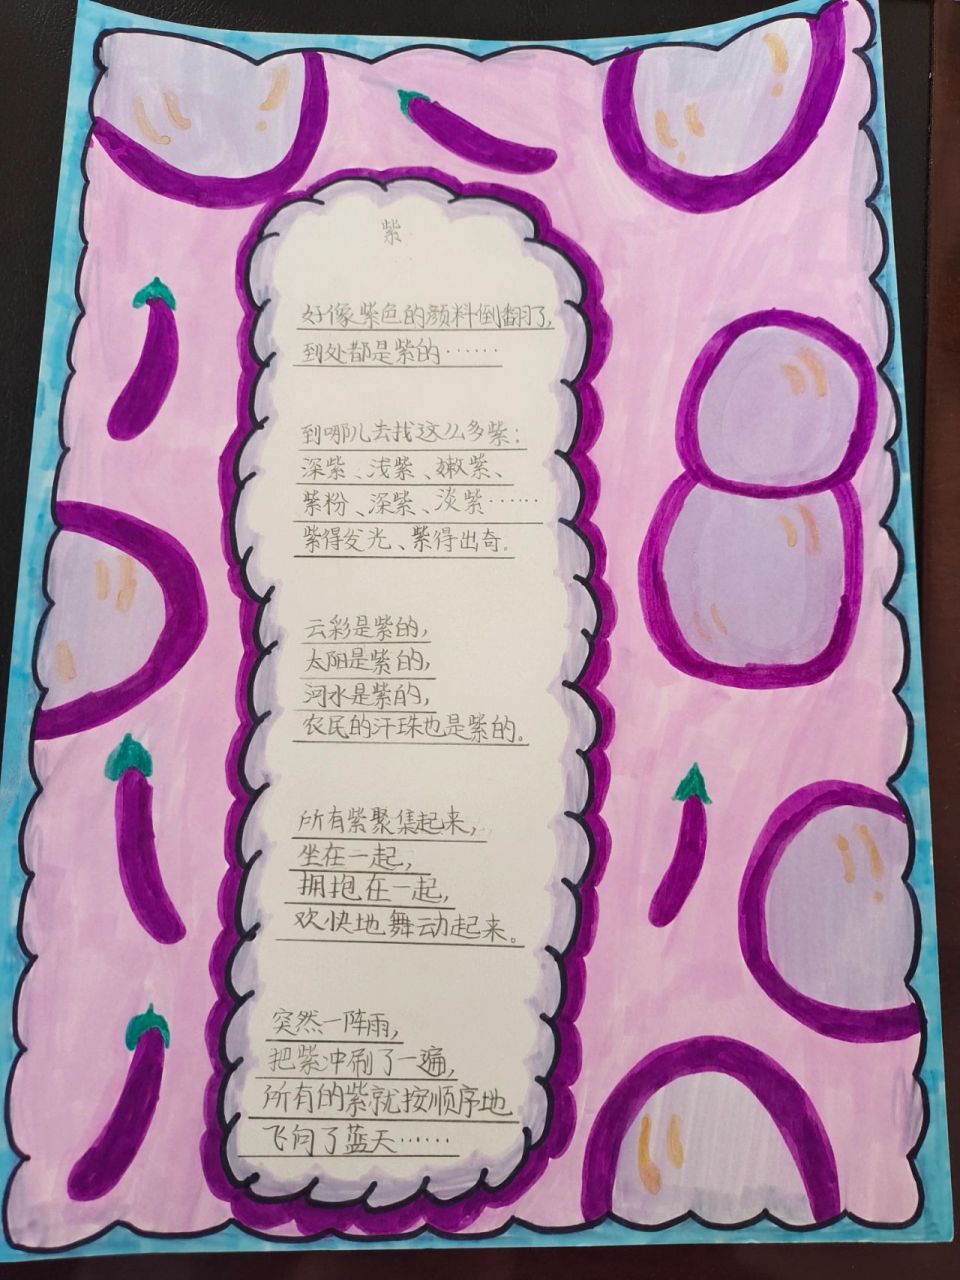 紫
好像紫色的颜料倒翻了,
到处都是紫的……
到哪儿去找这么多紫:
深紫、浅紫、嫩紫、
紫粉、深紫、淡紫……
紫得发光、紫得出奇。
云彩是紫的,
太阳是紫的,
河水是紫的,
农民的汗珠也是紫的。
所有紫聚集起来,
坐在一起,
拥抱在一起,
欢快地舞动起来。
突然一阵雨,
把紫冲刷了一遍,
所有的紫就按顺序地
飞向了蓝天……